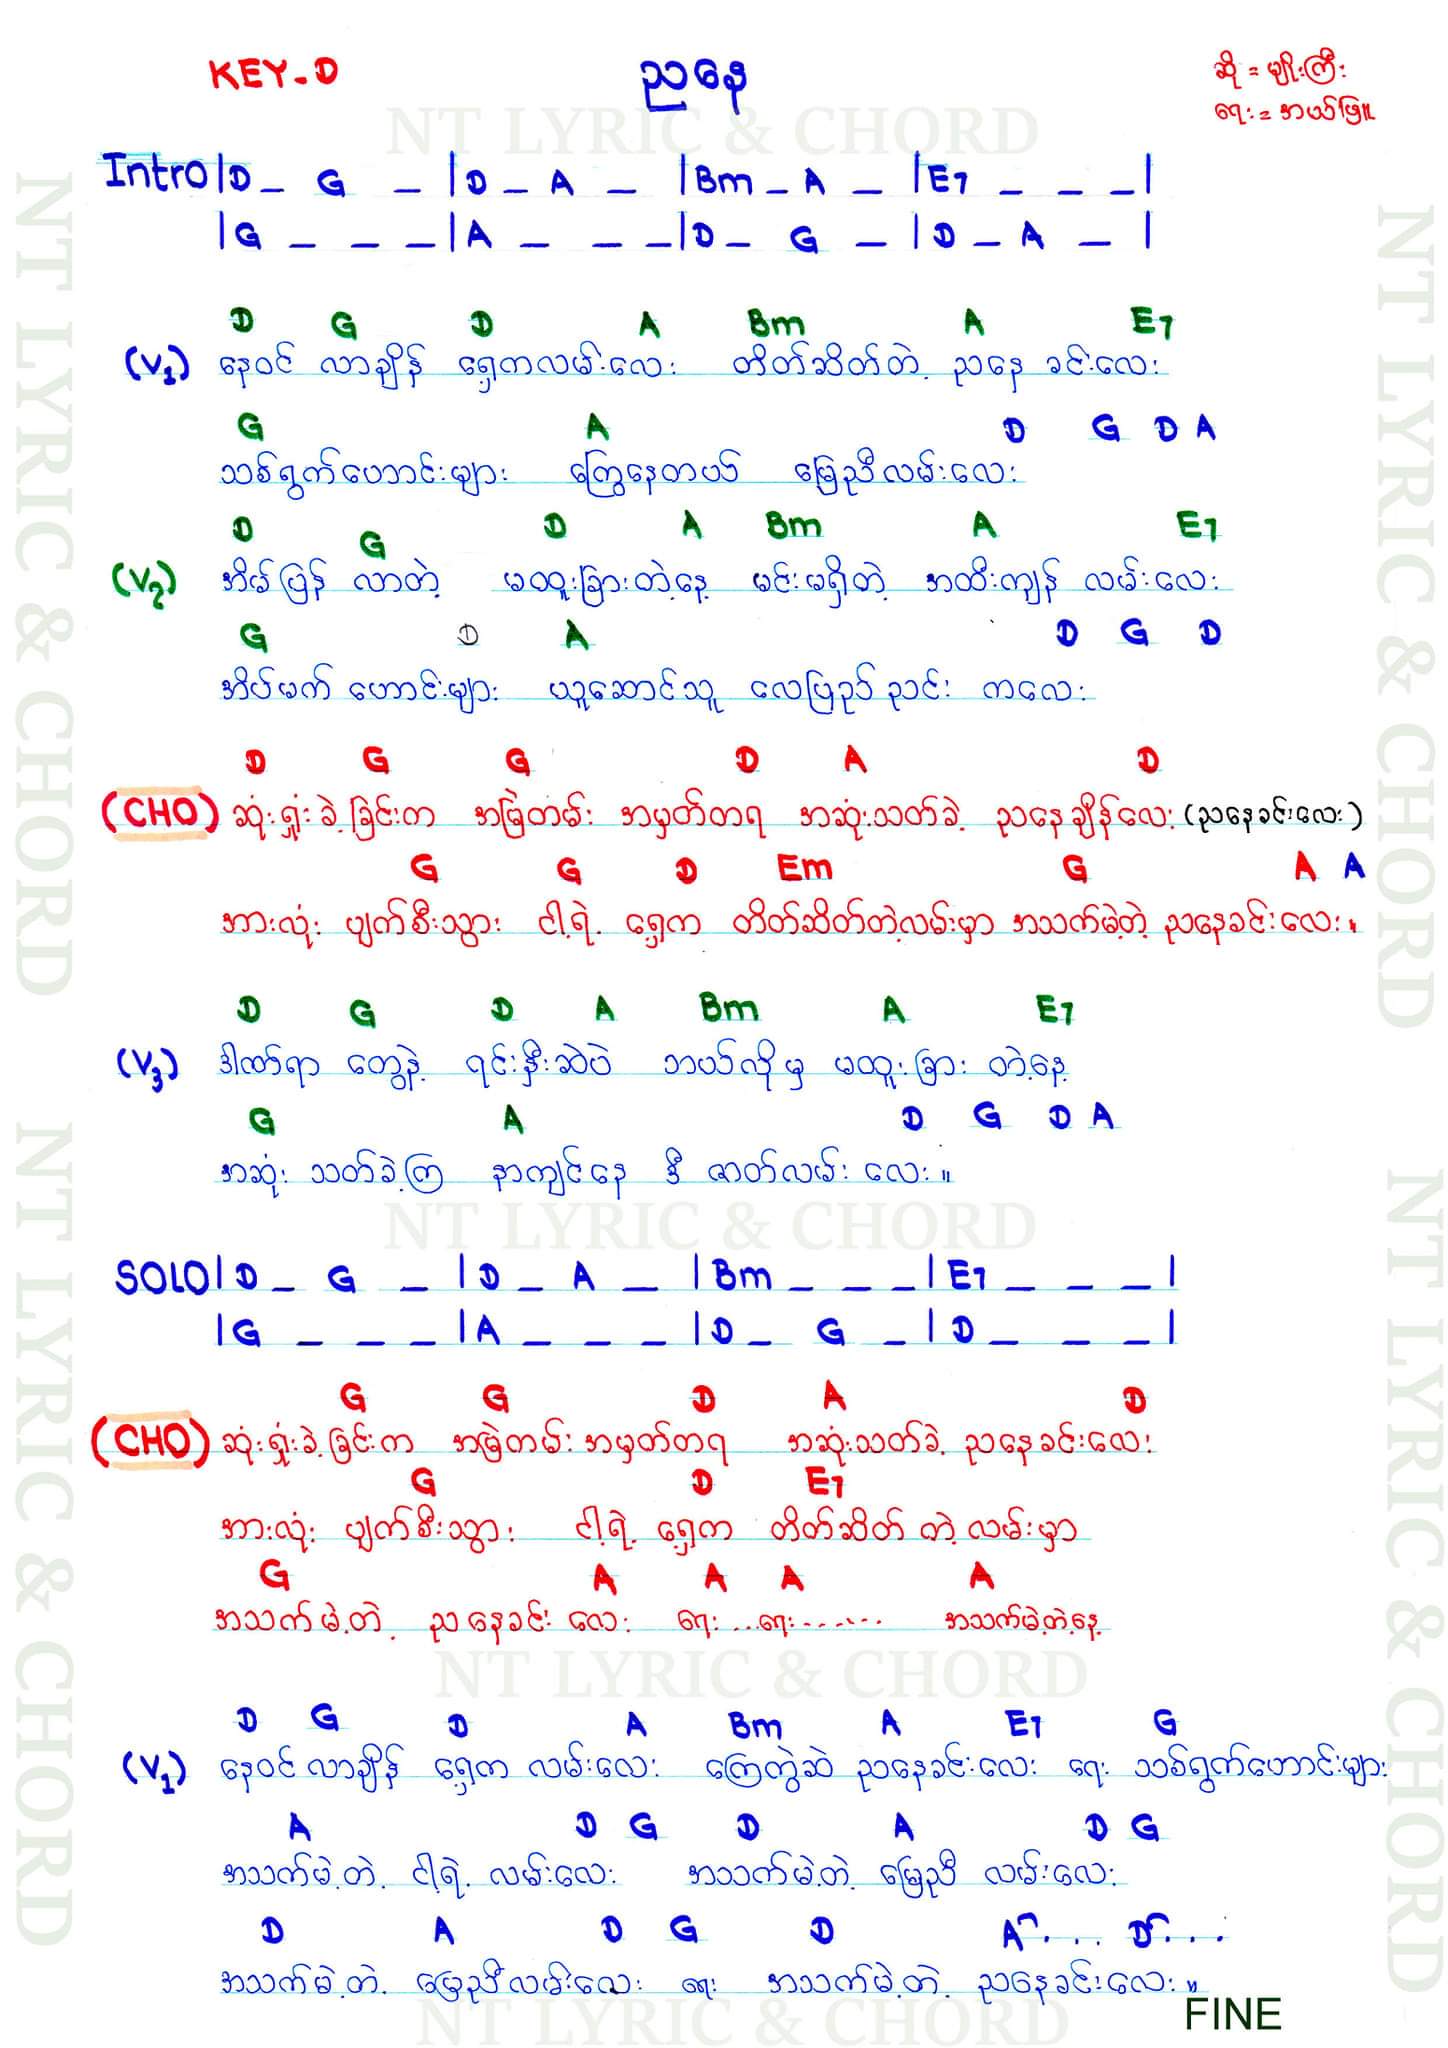 KEY-D ညနေ ဆို = မျိုးကြီး
ရေး = အငယ်ဖြူ
NT LYRIC & CHORD
Intro |D _ G _ |D _ A _ |Bm _ A _ |E7 _ _ _|
|G _ _ _|A _ _ _|D _ G _ |D _ A _ |
D G D A Bm A E7
(V1) နေဝင် လာချိန် ရှေ့ကလမ်းလေး တိတ်ဆိတ်တဲ့ ညနေ ခင်းလေး
G A D G D A
သစ်ရွက်ဟောင်းများ ကြွေနေတယ် မြေညီလမ်းလေး
D G D A Bm A E7
(V2) အိမ်ပြန် လာတဲ့ မထူးခြားတဲ့နေ့ မင်းမရှိတဲ့ အထီးကျန် လမ်းလေး
G D A D G D
အိပ်မက် ဟောင်းများ ယူဆောင်သူ လေပြည် ညင်း ကလေး
D G G D A D
(CHO) ဆုံးရှုံးခဲ့ခြင်းက အမြဲတမ်း အမှတ်တရ အဆုံးသတ်ခဲ့ ညနေချိန်လေး (ညနေခင်းလေး)
G G D Em G A A
အားလုံး ပျက်စီးသွား ငါ့ရဲ့ ရှေ့က တိတ်ဆိတ်တဲ့လမ်းမှာ အသက်မဲ့တဲ့ ညနေခင်းလေး။
D G D A Bm A E7
(V3) ဒါဏ်ရာ တွေနဲ့ ရင်းနှီးဆဲပဲ ဘယ်လိုမှ မထူးခြား တဲ့နေ့
G A D G D A
အဆုံး သတ်ခဲ့ကြ နာကျင်နေ ဒီ ဇာတ်လမ်း လေး။
NT LYRIC & CHORD
SOLO |D _ G _ |D _ A _ |Bm _ _ _|E7 _ _ _|
|G _ _ _|A _ _ _|D _ G _|D _ _ _|
G G D A D
(CHO) ဆုံးရှုံးခဲ့ခြင်းက အမြဲတမ်း အမှတ်တရ အဆုံးသတ်ခဲ့ ညနေခင်းလေး
G D E7
အားလုံး ပျက်စီးသွား ငါ့ရဲ့ ရှေ့က တိတ်ဆိတ် တဲ့ လမ်းမှာ
G A A A A
အသက်မဲ့တဲ့ ညနေခင်း လေး ရေး ...ရေး....... အသက်မဲ့တဲ့နေ့
NT LYRIC & CHORD
D G D A Bm A E7 G
(V1) နေဝင် လာချိန် ရှေ့က လမ်းလေး ကြေကွဲဆဲ ညနေခင်းလေး ရေး သစ်ရွက်ဟောင်းများ
A D G D A D G
အသက်မဲ့တဲ့ ငါ့ရဲ့ လမ်းလေး အသက်မဲ့တဲ့ မြေညီ လမ်းလေး
D A D G D A... D...
အသက်မဲ့တဲ့ မြေညီလမ်းလေး ရေး အသက်မဲ့တဲ့ ညနေခင်းလေး။
FINE
NT LYRIC & CHORD
NT LYRIC & CHORD
NT LYRIC & CHORD
NT LYRIC & CHORD
NT LYRIC & CHORD